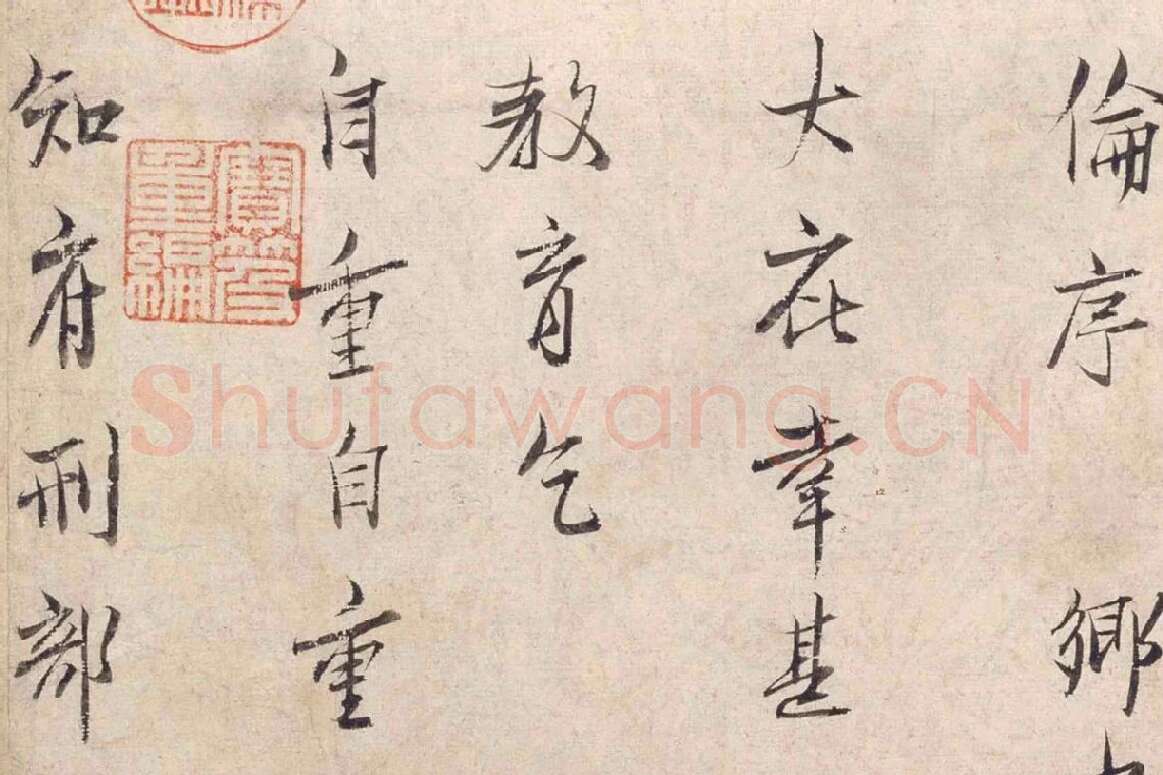 倫序鄉
大庇幸甚
教育乞
自重自重
知府刑部
寶笈重編
Shufawang.CN